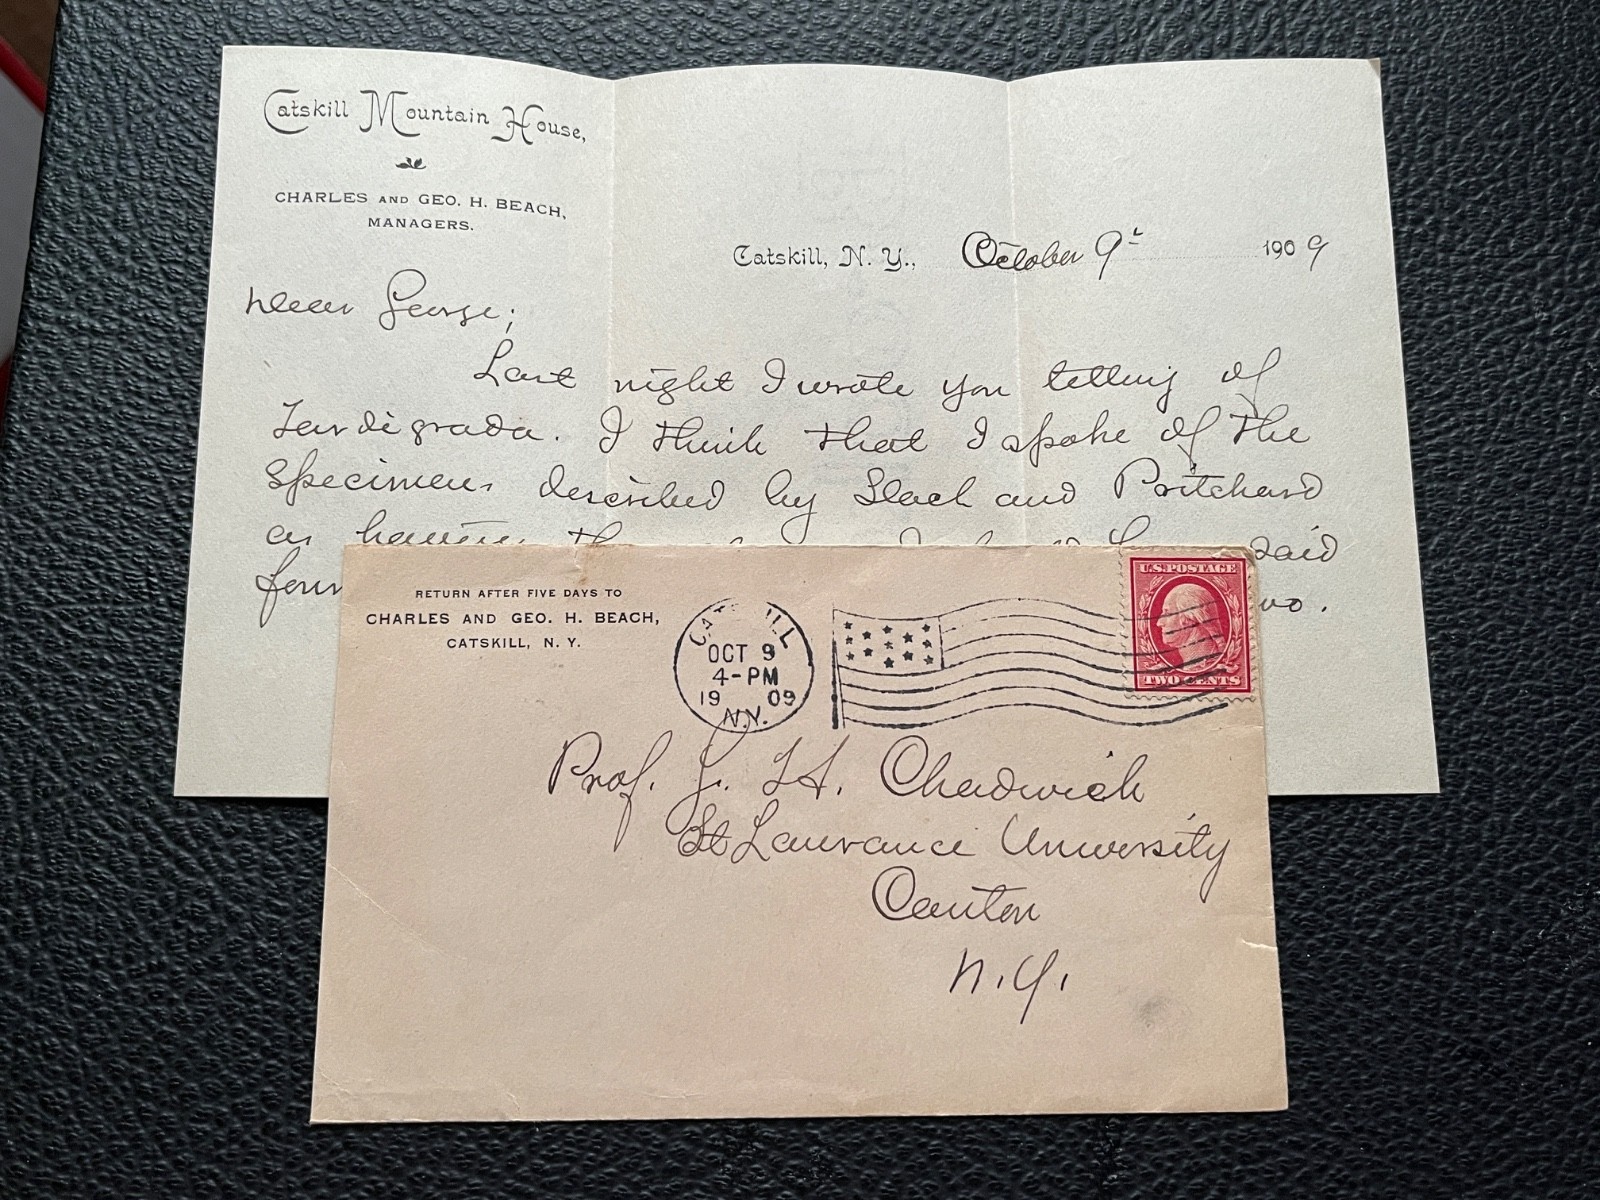 Catskill Mountain House,
CHARLES AND GEO. H. BEACH,
MANAGERS.
Catskill, N. Y., October 9th 1909
Dear George;
Last night I wrote you telling of
Tardigrada. I think that I spoke of the
specimens described by Slack and Pritchard
as having said
four
RETURN AFTER FIVE DAYS TO
CHARLES AND GEO. H. BEACH,
CATSKILL, N. Y.
CATSKILL
OCT 9
4-PM
1909
N.Y.
U.S. POSTAGE
TWO CENTS
Prof. G. H. Chadwick
St Laurance University
Canton
N.Y.